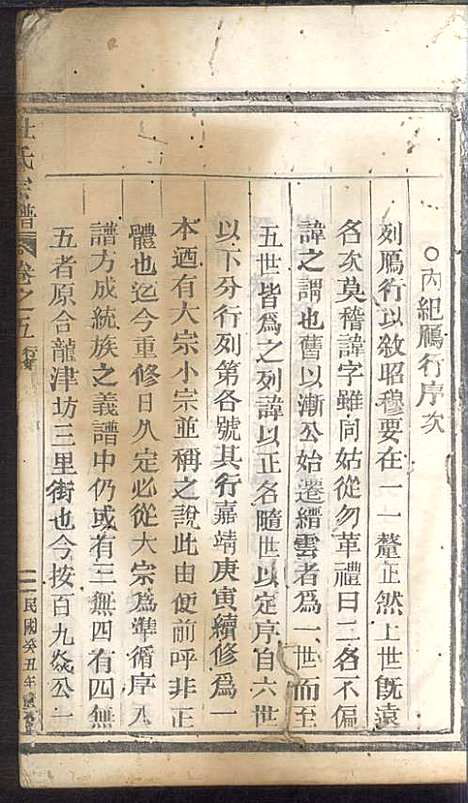 ○內紀鴈行序次
列鴈行以敘昭穆要在一一釐正然上世旣遠
名次莫稽諱字雖同姑從勿革禮曰二名不偏
諱之謂也舊以漸公始遷縉雲者爲一世而至
五世皆爲之列諱以正名隨世以定序自六世
以下分行列第各號其行嘉靖庚寅續修爲一
本迺有大宗小宗並稱之說此由便前呼非正
體也迄今重修日久定必從大宗爲準循序入
譜方成統族之義譜中仍或有三無四有四無
五者原合龍津坊三里街也今按百九燚公一
杜氏宗譜 卷之五 行第
民國癸丑年重修